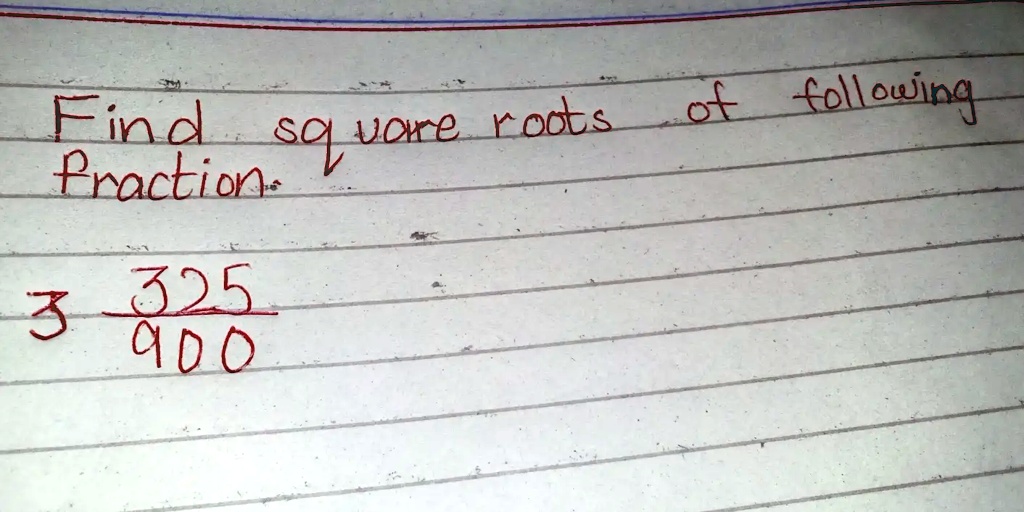 Find square roots of following
fraction.
3 325/900